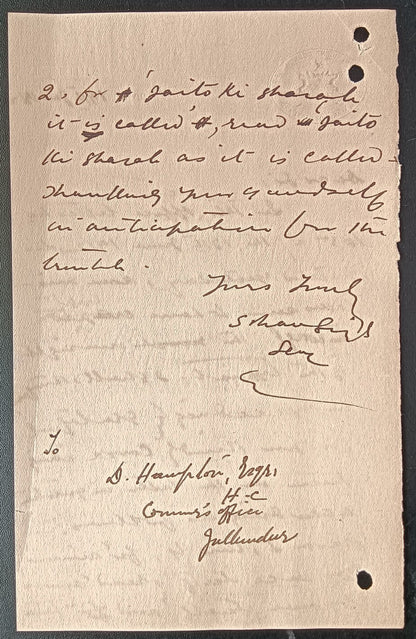 2. for "Jaito ki sharah
it is called", read "Jaito
ki sharah as it is called".
Thanking your goodself
in anticipation for the
trouble.
Yours truly
Sohan Singh
To
D. Hampton, Esqr,
H-C
Commr's office
Jullundur